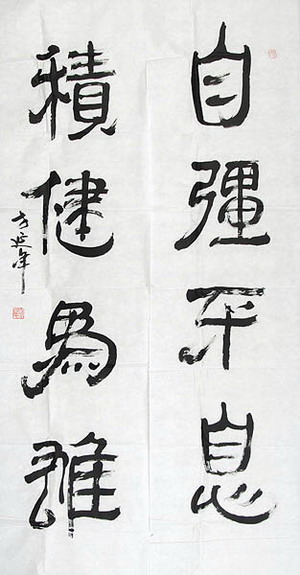 自彊不息
積健為雄
方延年